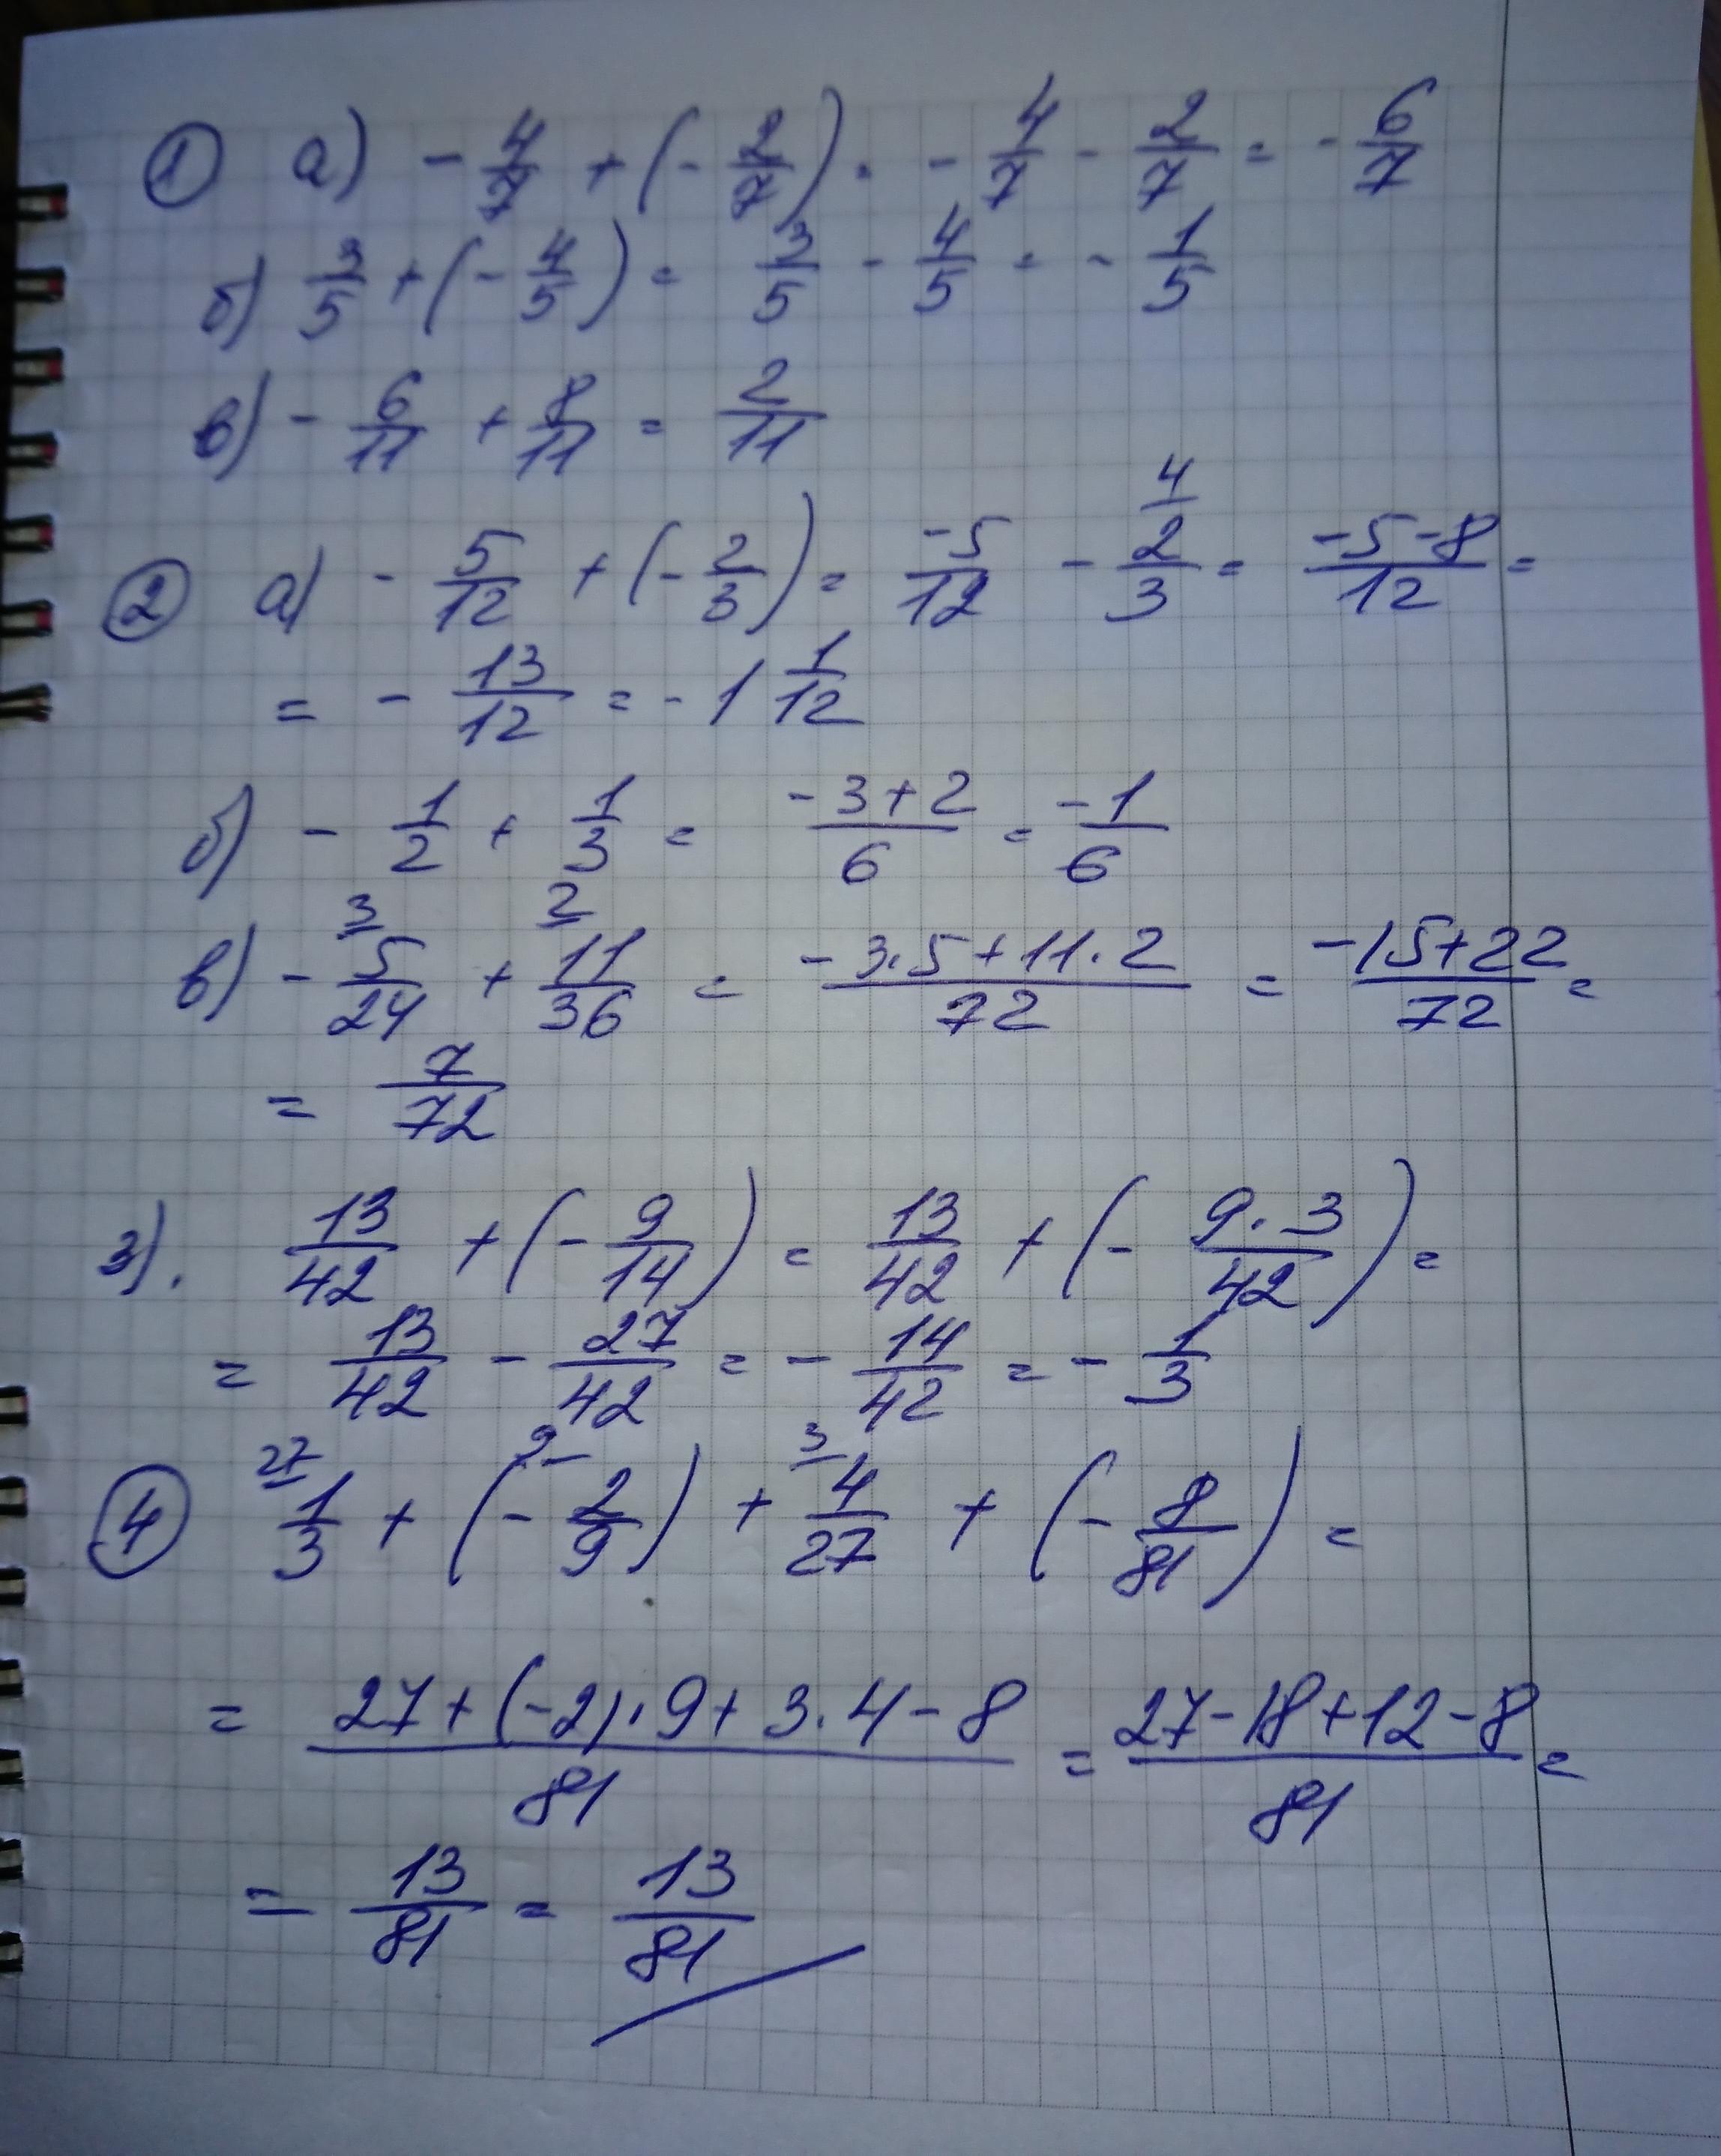 ① а) - 4/7 + (- 2/7) = - 4/7 - 2/7 = - 6/7
б) 3/5 + (- 4/5) = 3/5 - 4/5 = - 1/5
в) - 6/11 + 8/11 = 2/11
② а) - 5/12 + (- 2/3) = -5/12 - 4/ 2/3 = -5-8/12 =
= - 13/12 = - 1 1/12
б) - 1/2 + 1/3 = -3+2/6 = -1/6
в) - 3/ 5/24 + 2/ 11/36 = -3·5+11·2/72 = -15+22/72 =
= 7/72
3). 13/42 + (- 9/14) = 13/42 + (- 9·3/42) =
= 13/42 - 27/42 = - 14/42 = - 1/3
④ 27/ 1/3 + (- 9/ 2/9) + 3/ 4/27 + (- 8/81) =
= 27+(-2)·9+3·4-8/81 = 27-18+12-8/81 =
= 13/81 = 13/81